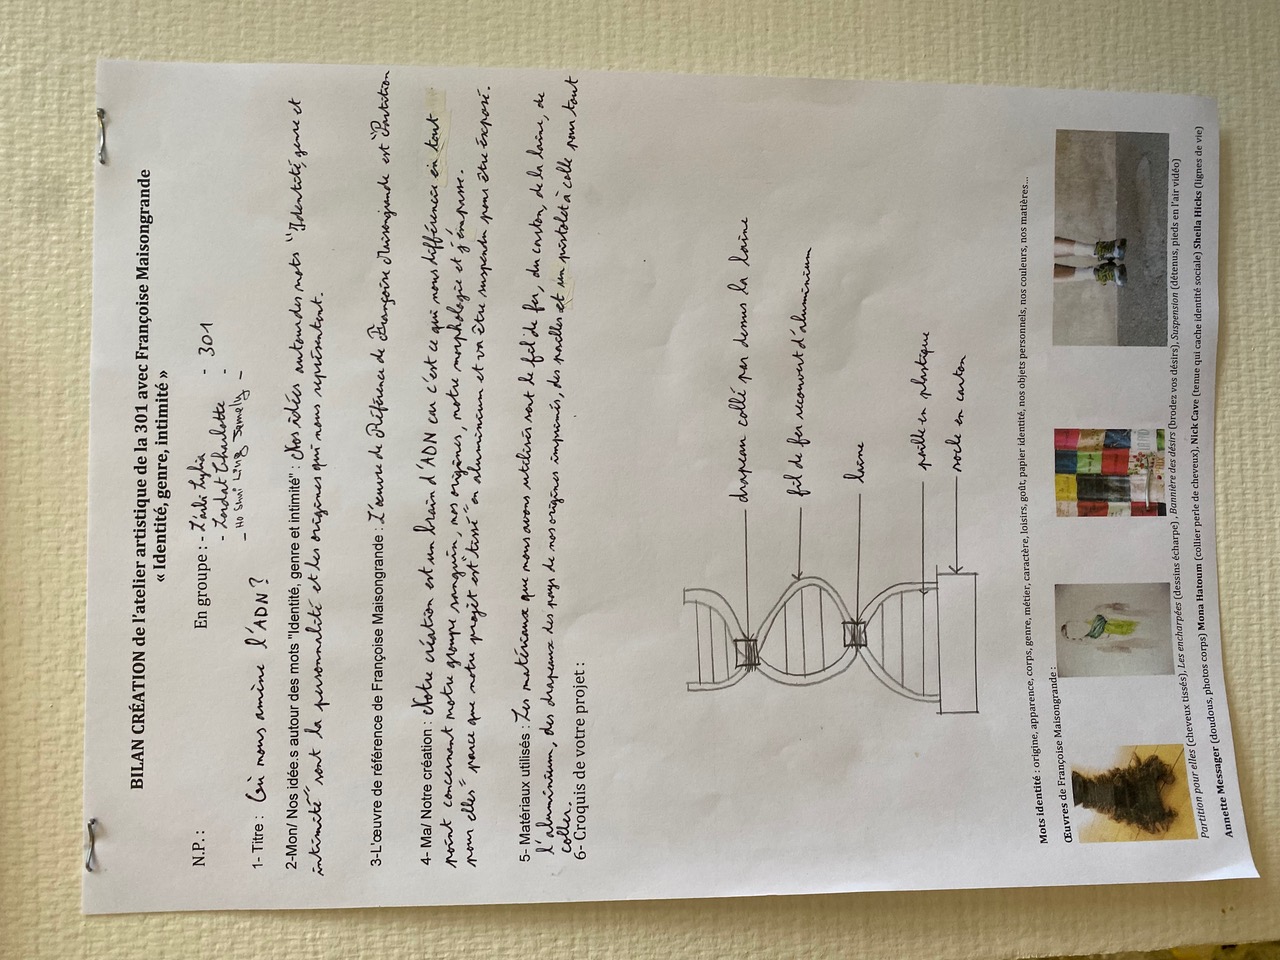 BILAN CRÉATION de l'atelier artistique de la 301 avec Françoise Maisongrande
« Identité, genre, intimité »
N.P. : En groupe : -
- Charlotte - 301
- Ho Shui Ling -
1- Titre : Où nous amène l'ADN ?
2-Mon/ Nos idée.s autour des mots "Identité, genre et intimité" : Nos idées autour des mots "Identité, genre et
intimité" sont la personnalité et les origines qui nous représentent.
3-L'œuvre de référence de Françoise Maisongrande : L'œuvre de Référence de Françoise Maisongrande est "Partition
4- Ma/ Notre création : Notre création est un brain d'ADN car c'est ce qui nous différencie en tout
point concernant notre groupe sanguin, nos origines, notre morphologie et j'en passe.
pour elles" parce que notre projet est tissé en aluminium et va être suspendu pour être exposé.
5- Matériaux utilisés : Les matériaux que nous avons utilisés sont le fil de fer, du carton, de la laine, de
l'aluminium, des drapeaux des pays de nos origines imprimés, des pailles et un pistolet à colle pour tout
coller.
6- Croquis de votre projet :
drapeau collé par dessus la laine
fil de fer recouvert d'aluminium
laine
paille en plastique
socle en carton
Mots identité : origine, apparence, corps, genre, métier, caractère, loisirs, goût, papier identité, nos objets personnels, nos couleurs, nos matières...
Œuvres de Françoise Maisongrande :
Partition pour elles (cheveux tissés), Les encharpées (dessins écharpe) , Bannière des désirs (brodez vos désirs), Suspension (détenus, pieds en l'air vidéo)
Annette Messager (doudous, photos corps) Mona Hatoum (collier perle de cheveux), Nick Cave (tenue qui cache identité sociale) Sheila Hicks (lignes de vie)